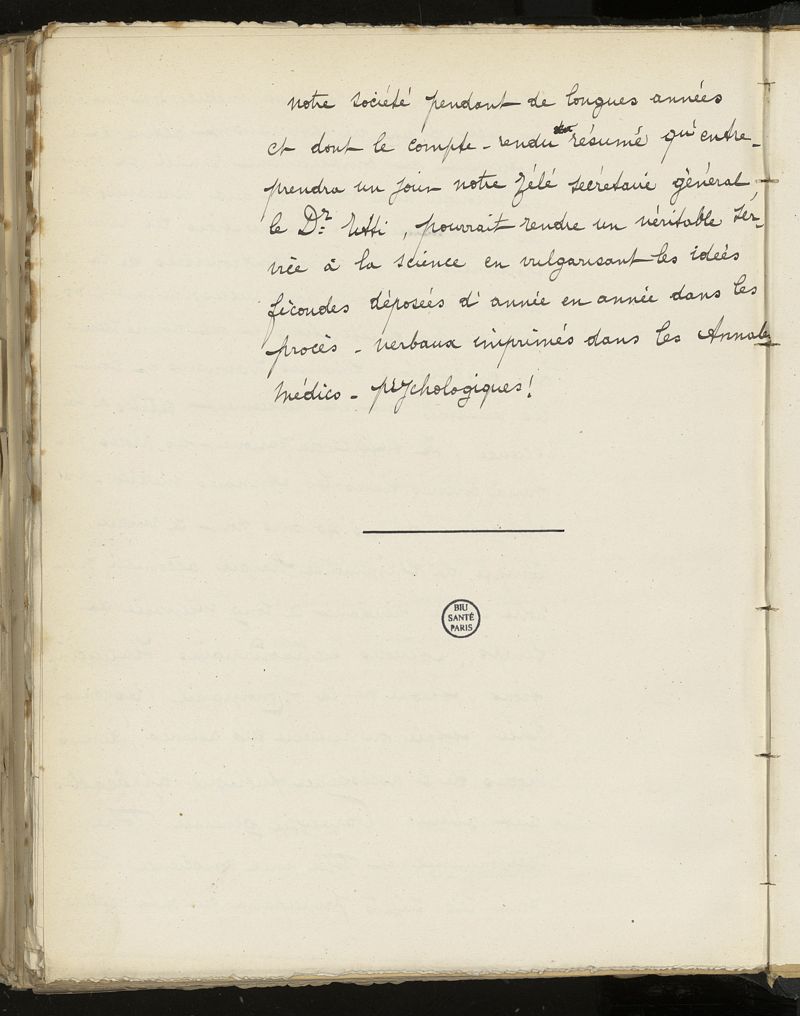 notre société pendant de longues années
et dont le compte-rendu résumé qu'entre-
prendra un jour notre zélé secrétaire général,
le Dr. Ritti, pourrait rendre un véritable ser-
vice à la science en vulgarisant les idées
fécondes déposées d'année en année dans les
procès-verbaux imprimés dans les Annales
médico-psychologiques!
BIU
SANTÉ
PARIS